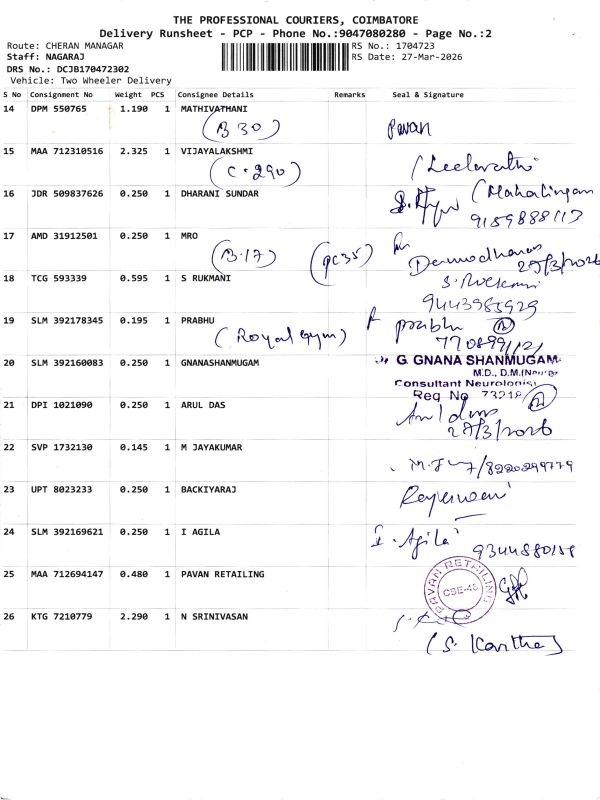 THE PROFESSIONAL COURIERS, COIMBATORE
Delivery Runsheet - PCP - Phone No.:9047080280 - Page No.:2
Route: CHERAN MANAGAR
RS No.: 1704723
Staff: NAGARAJ
RS Date: 27-Mar-2026
DRS No.: DCJB170472302
Vehicle: Two Wheeler Delivery
S No Consignment No Weight PCS Consignee Details Remarks Seal & Signature
14 DPM 550765 1.190 1 MATHIVATHANI
(B 30) Pavan
15 MAA 712310516 2.325 1 VIJAYALAKSHMI
(C-290) (Leelavathi
16 JDR 509837626 0.250 1 DHARANI SUNDAR
(Mahalingam
9159888113
17 AMD 31912501 0.250 1 MRO
(B-17) (PC35)
Damodharan
27/3/2026
18 TCG 593339 0.595 1 S RUKMANI
S. Rukmani
9443985929
19 SLM 392178345 0.195 1 PRABHU
(Royal Gym) prabhu
20 SLM 392160083 0.250 1 GNANASHANMUGAM
G. GNANA SHANMUGAM
M.D., D.M.
Consultant Neurologist
Reg No 73218
21 DPI 1021090 0.250 1 ARUL DAS
Arul das
27/3/2026
22 SVP 1732130 0.145 1 M JAYAKUMAR
8220299779
23 UPT 8023233 0.250 1 BACKIYARAJ
24 SLM 392169621 0.250 1 I AGILA
I. Agila
25 MAA 712694147 0.480 1 PAVAN RETAILING
PAVAN RETAILING
CBE-45
26 KTG 7210779 2.290 1 N SRINIVASAN